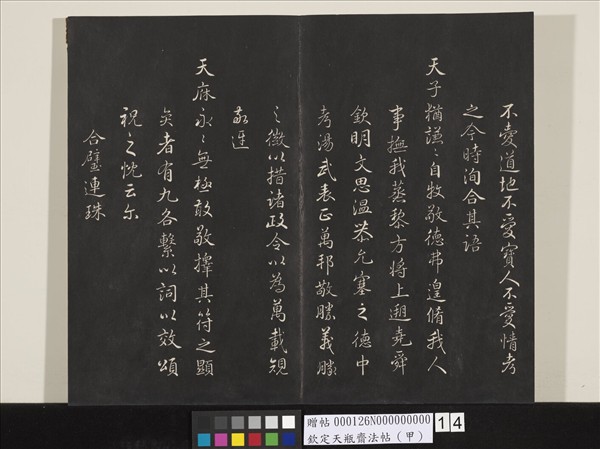 不愛道地不愛寶人不愛情考
之今時洵合其語
天子猶謙謙自牧敬德弗遑脩我人
事撫我蒸黎方將上遡堯舜
欽明文思溫恭允塞之德中
考湯武表正萬邦敬勝義勝
之徵以措諸政令以為萬載規
敬迓
天庥永永無極敢敬擇其符之顯
奐者有九各繫以詞以效頌
祝之忱云尔
合璧連珠
贈帖 000126N000000000
14
欽定天瓶齋法帖（甲）